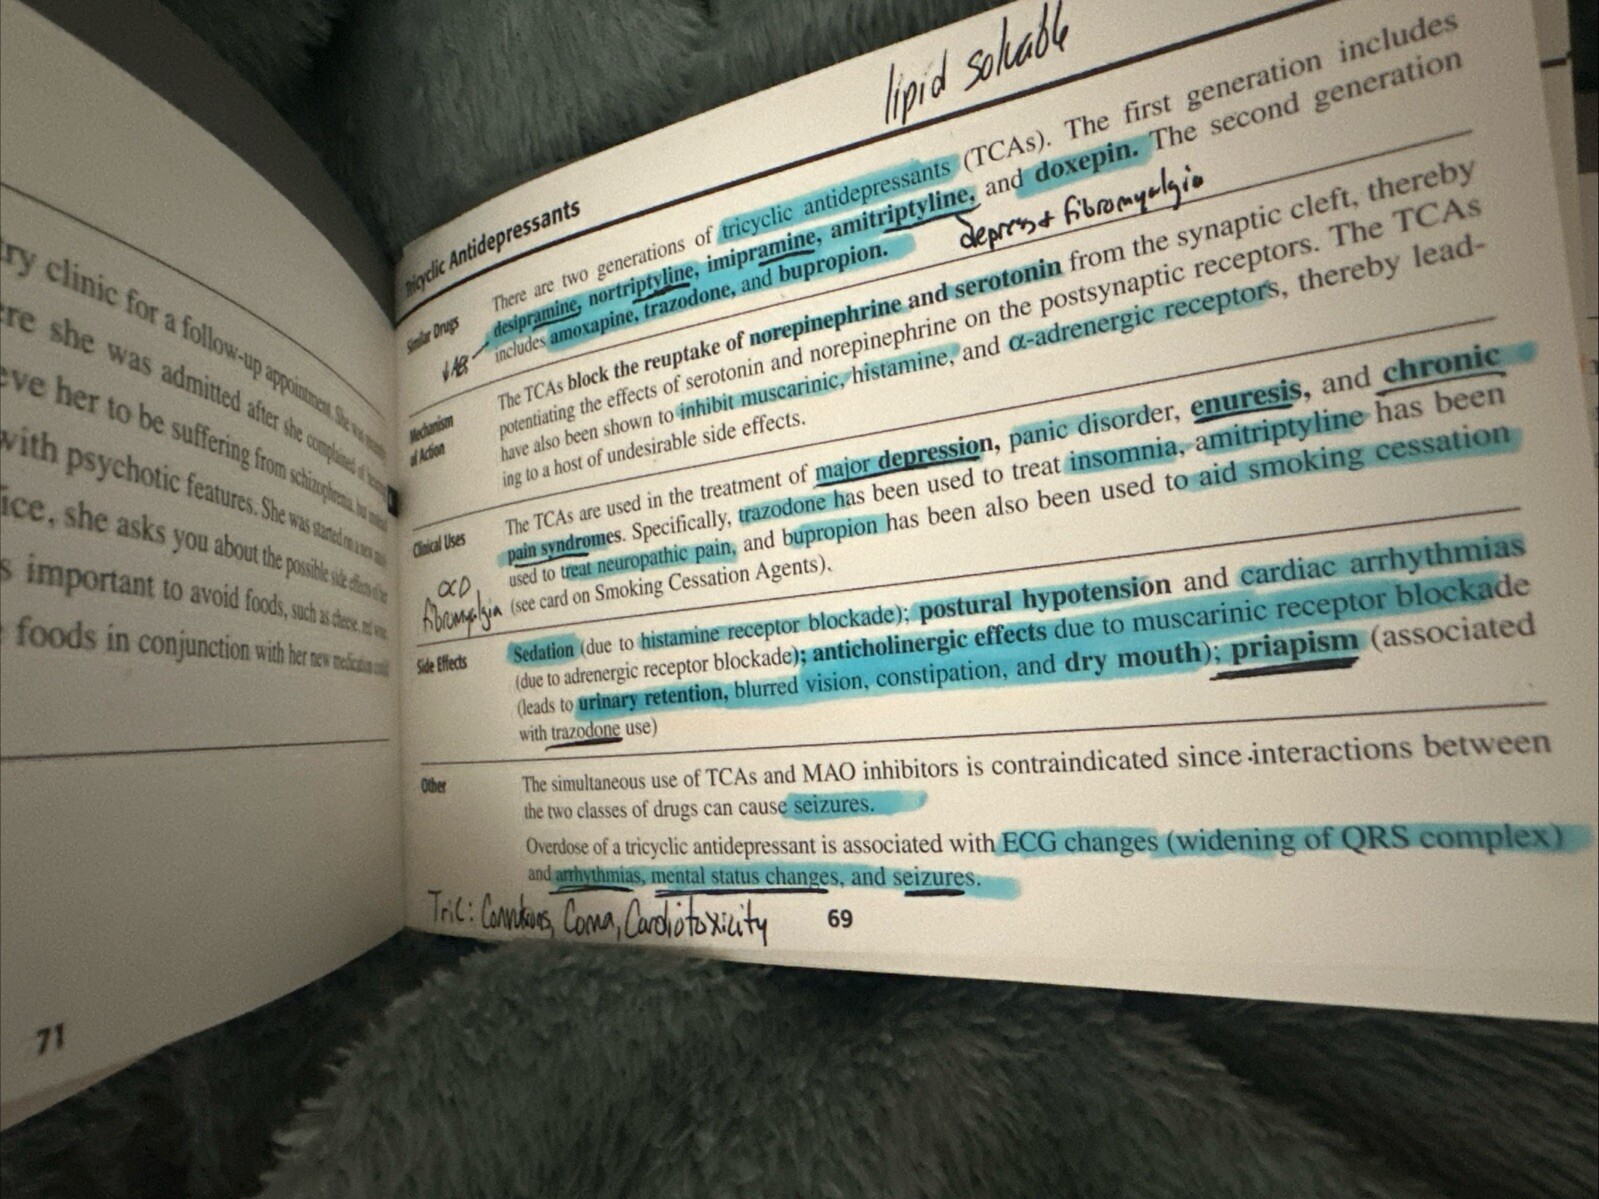 try clinic for a follow-up appointment. She was recently
ere she was admitted after she complained of hearing
eve her to be suffering from schizophrenia, but
with psychotic features. She was started on a new
ice, she asks you about the possible side effects of her
s important to avoid foods, such as cheese, red wine,
foods in conjunction with her new medication could
71
lipid soluable
Tricyclic Antidepressants
Similar Drugs
There are two generations of tricyclic antidepressants (TCAs). The first generation includes
desipramine, nortriptyline, imipramine, amitriptyline, and doxepin. The second generation
includes amoxapine, trazodone, and bupropion.
depress + fibromyalgia
Mechanism
of Action
The TCAs block the reuptake of norepinephrine and serotonin from the synaptic cleft, thereby
potentiating the effects of serotonin and norepinephrine on the postsynaptic receptors. The TCAs
have also been shown to inhibit muscarinic, histamine, and α-adrenergic receptors, thereby lead-
ing to a host of undesirable side effects.
Clinical Uses
The TCAs are used in the treatment of major depression, panic disorder, enuresis, and chronic
pain syndromes. Specifically, trazodone has been used to treat insomnia, amitriptyline has been
used to treat neuropathic pain, and bupropion has been also been used to aid smoking cessation
(see card on Smoking Cessation Agents).
OCD
fibromyalgia
Side Effects
Sedation (due to histamine receptor blockade); postural hypotension and cardiac arrhythmias
(due to adrenergic receptor blockade); anticholinergic effects due to muscarinic receptor blockade
(leads to urinary retention, blurred vision, constipation, and dry mouth); priapism (associated
with trazodone use)
Other
The simultaneous use of TCAs and MAO inhibitors is contraindicated since interactions between
the two classes of drugs can cause seizures.
Overdose of a tricyclic antidepressant is associated with ECG changes (widening of QRS complex)
and arrhythmias, mental status changes, and seizures.
TriC: Convulsions, Coma, Cardiotoxicity
69